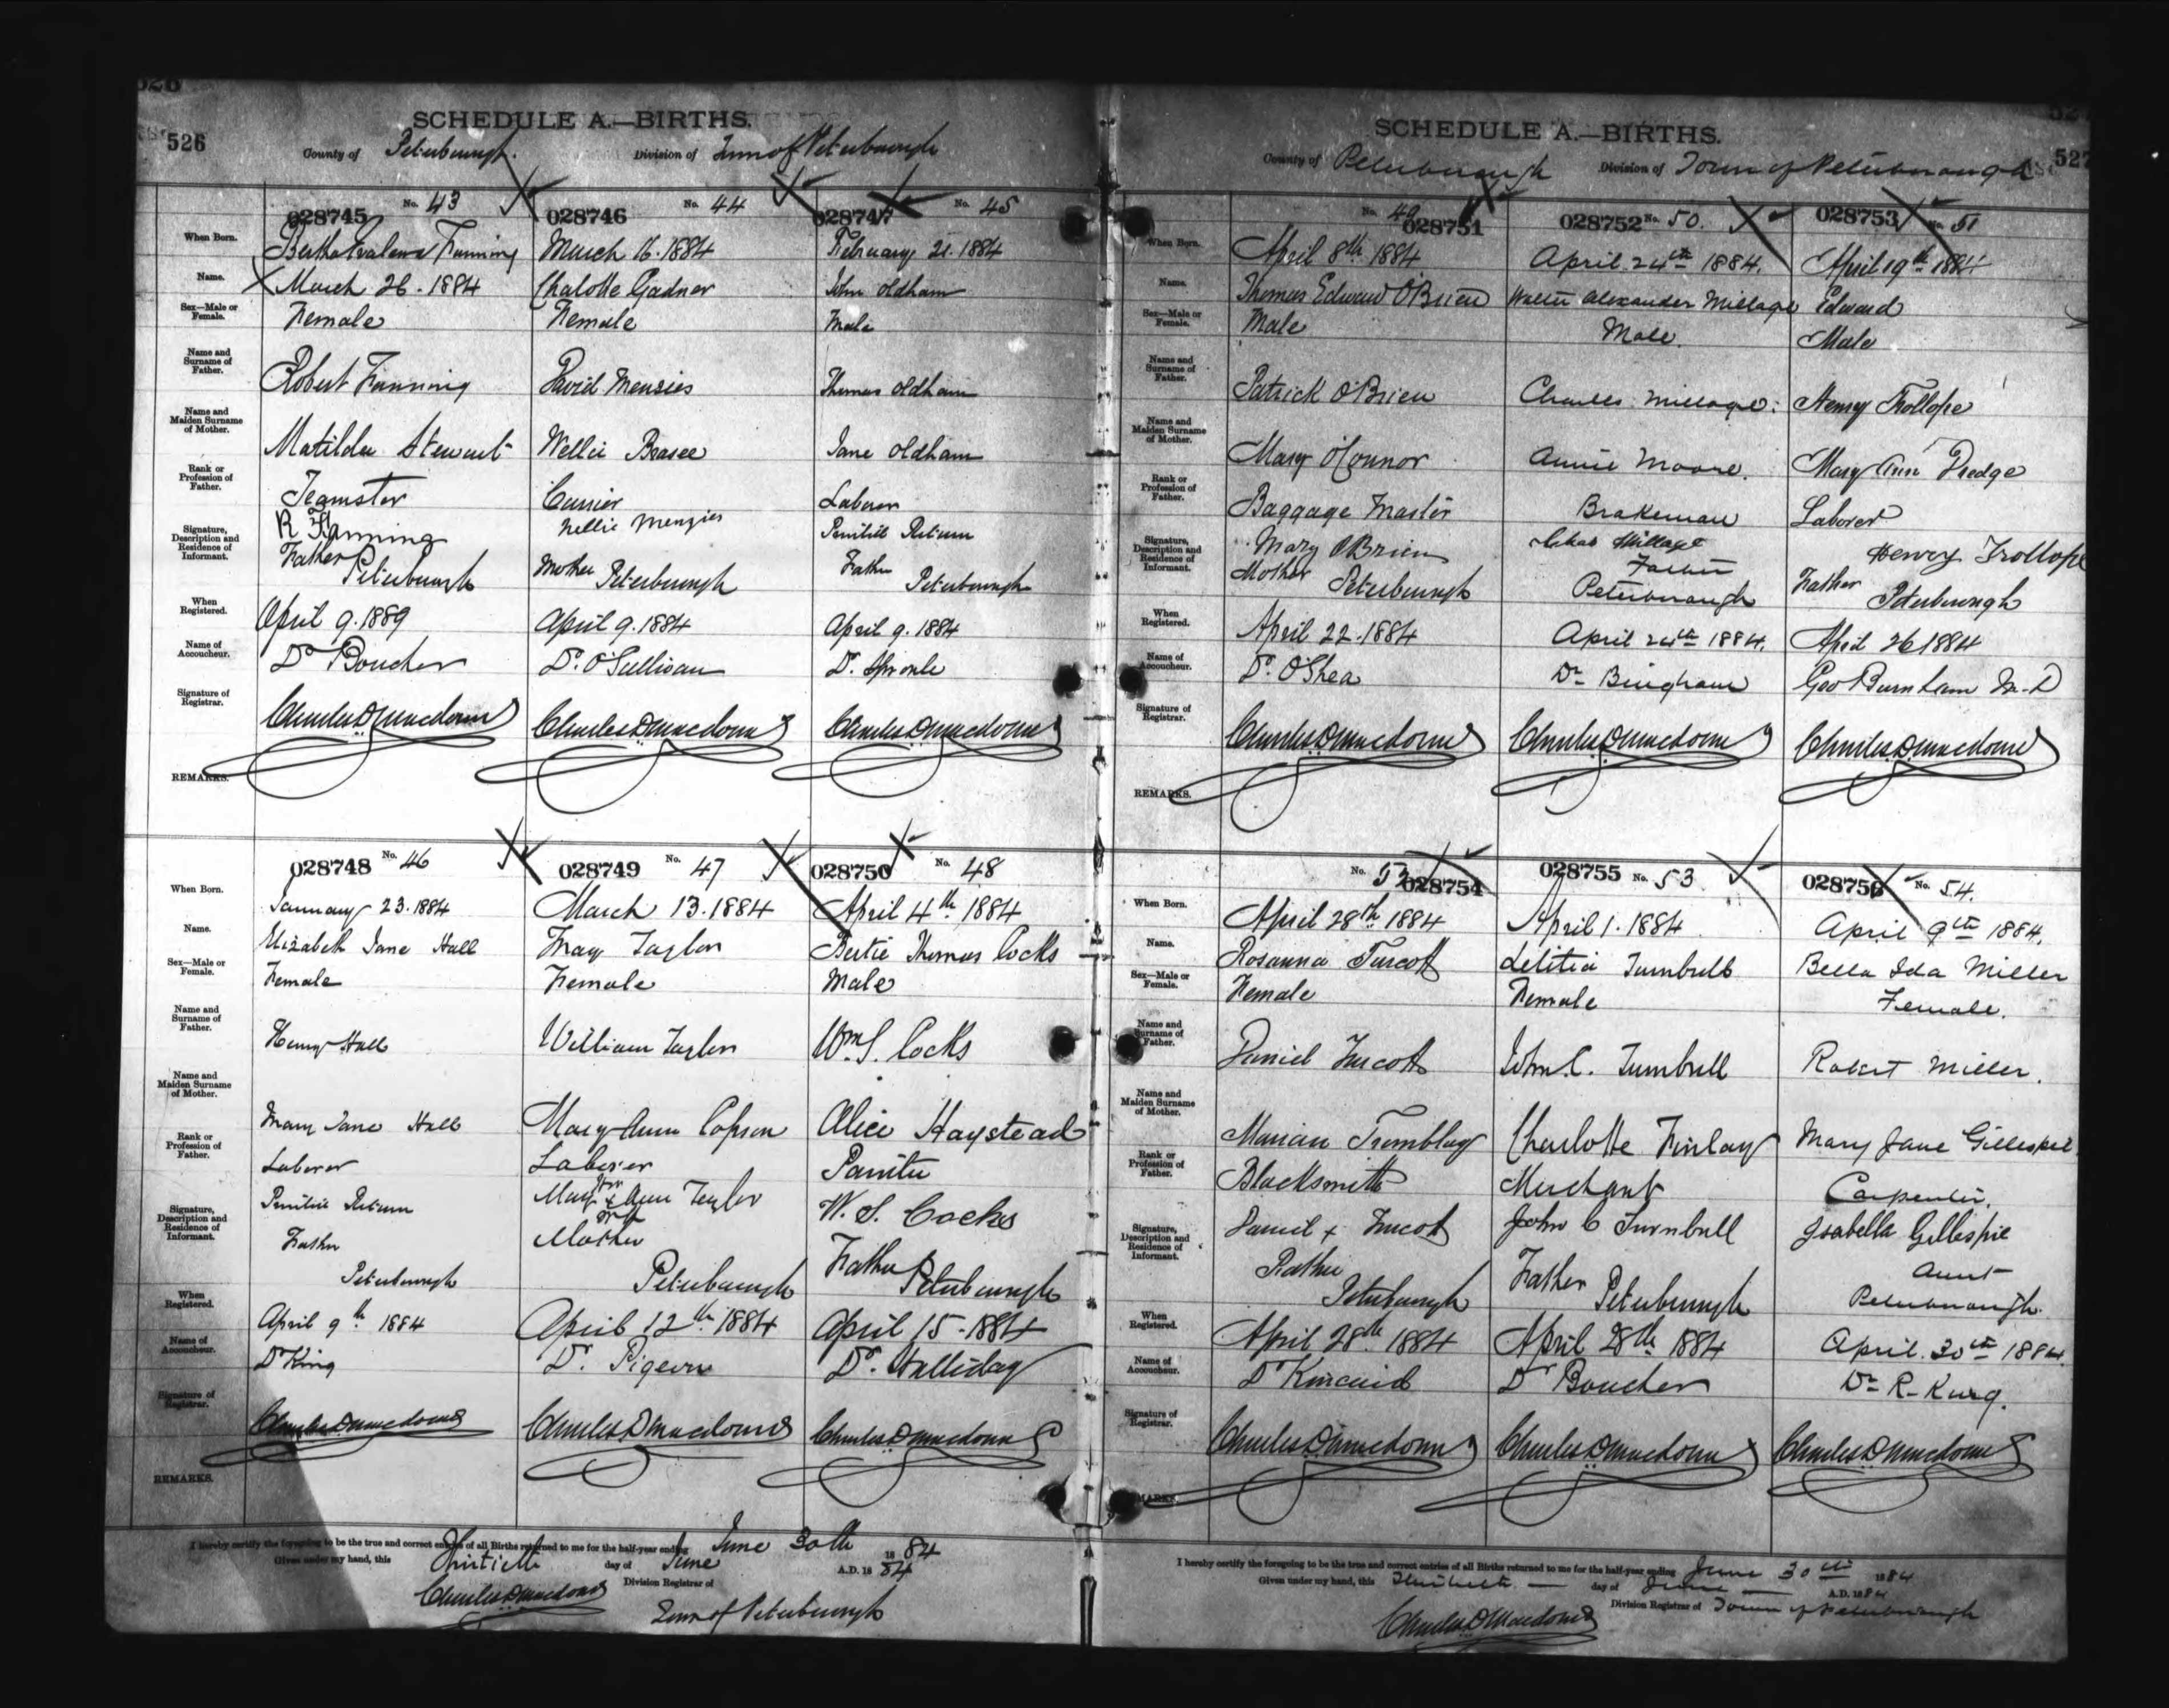 526
SCHEDULE A.—BIRTHS.
County of Peterburugh. Division of Town of Peterburugh
No. 43
028745
When Born. Bertha Evalena Fanning
Name. March 26. 1884
Sex—Male or Female. Female
Name and Surname of Father. Robert Fanning
Name and Maiden Surname of Mother. Matilda Stewart
Rank or Profession of Father. Teamster
Signature, Description and Residence of Informant. R Fanning
Father
Peterburugh
When Registered. April 9. 1889
Name of Accoucheur. Dr Boucher
Signature of Registrar. Charles D Macdonnell
REMARKS.
028746 No. 44
March 16. 1884
Chalotte Gadner
Female
David Menzies
Nellie
Carrier
Nellie Menzies
Mother Peterburugh
April 9. 1884
Dr. O'Sullivan
Charles D Macdonnell
028747 No. 45
February 21. 1884
John Oldham
Male
Thomas Oldham
Jane Oldham
Laborer
Return
Father
Peterburugh
April 9. 1884
Dr. Sproule
Charles D Macdonnell
028748 No. 46
When Born. January 23. 1884
Name. Elizabeth Jane Hall
Sex—Male or Female. Female
Name and Surname of Father. Henry Hall
Name and Maiden Surname of Mother. Mary Jane Hall
Rank or Profession of Father. Laborer
Signature, Description and Residence of Informant. Return
Father
Peterburugh
When Registered. April 9th 1884
Name of Accoucheur. Dr King
Signature of Registrar. Charles D Macdonnell
REMARKS.
028749 No. 47
March 13. 1884
Taylor
Female
William Taylor
Mary Ann Copson
Laborer
Mary + Ann Taylor
Mother
Peterburugh
April 12th 1884
Dr. Pigeon
Charles D Macdonnell
028750 No. 48
April 4th 1884
Bertie Thomas Cocks
Male
Wm S. Cocks
Alice Haystead
Painter
W. S. Cocks
Father
Peterburugh
April 15 - 1884
Dr. Halliday
Charles D Macdonnell
I hereby certify the foregoing to be the true and correct entries of all Births returned to me for the half-year ending June 30th 1884
Given under my hand, this Thirtieth day of June A.D. 1884
Charles D Macdonnell Division Registrar of
Town of Peterburugh
527
SCHEDULE A.—BIRTHS.
County of Peterborough Division of Town of Peterborough
No. 49
028751
When Born. April 8th 1884
Name. Thomas Edward O'Brien
Sex—Male or Female. Male
Name and Surname of Father. Patrick O'Brien
Name and Maiden Surname of Mother. Mary O'Connor
Rank or Profession of Father. Baggage Master
Signature, Description and Residence of Informant. Mary OBrien
Mother Peterburugh
When Registered. April 22. 1884
Name of Accoucheur. Dr. O'Shea
Signature of Registrar. Charles D Macdonnell
REMARKS.
028752 No. 50.
April 24th 1884.
Walter Alexander Millage
Male.
Charles Millage.
Annie Moore.
Brakeman
Chas Millage
Father
Peterborough
April 24th 1884.
Dr Bingham
Charles D Macdonnell
028753 No. 51
April 19th 1884
Edward
Male
Henry Trollope
Mary Ann Pledge
Laborer
Henry Trollope
Father
Peterburugh
April 26 1884
Geo Burnham M.D
Charles D Macdonnell
No. 52
028754
When Born. April 28th 1884
Name. Rosanna Turcott
Sex—Male or Female. Female
Name and Surname of Father. Daniel Turcott
Name and Maiden Surname of Mother. Marian Tremblay
Rank or Profession of Father. Blacksmith
Signature, Description and Residence of Informant. Daniel + Turcott
Father
Peterburugh
When Registered. April 28th 1884
Name of Accoucheur. Dr Kincaid
Signature of Registrar. Charles D Macdonnell
028755 No. 53
April 1. 1884
Letitia Turnbull
Female
John C. Turnbull
Charlotte Finlay
Merchant
John C Turnbull
Father Peterburugh
April 28th 1884
Dr Boucher
Charles D Macdonnell
028756 No. 54.
April 9th 1884.
Bella Ida Miller
Female.
Robert Miller.
Mary Jane Gillespie
Carpenter.
Isabella Gillespie
Aunt
Peterborough.
April 30th 1884.
Dr R. King.
Charles D Macdonnell
I hereby certify the foregoing to be the true and correct entries of all Births returned to me for the half-year ending June 30th 1884
Given under my hand, this Thirtieth day of June A.D. 1884
Division Registrar of Town of Peterborough
Charles D Macdonnell